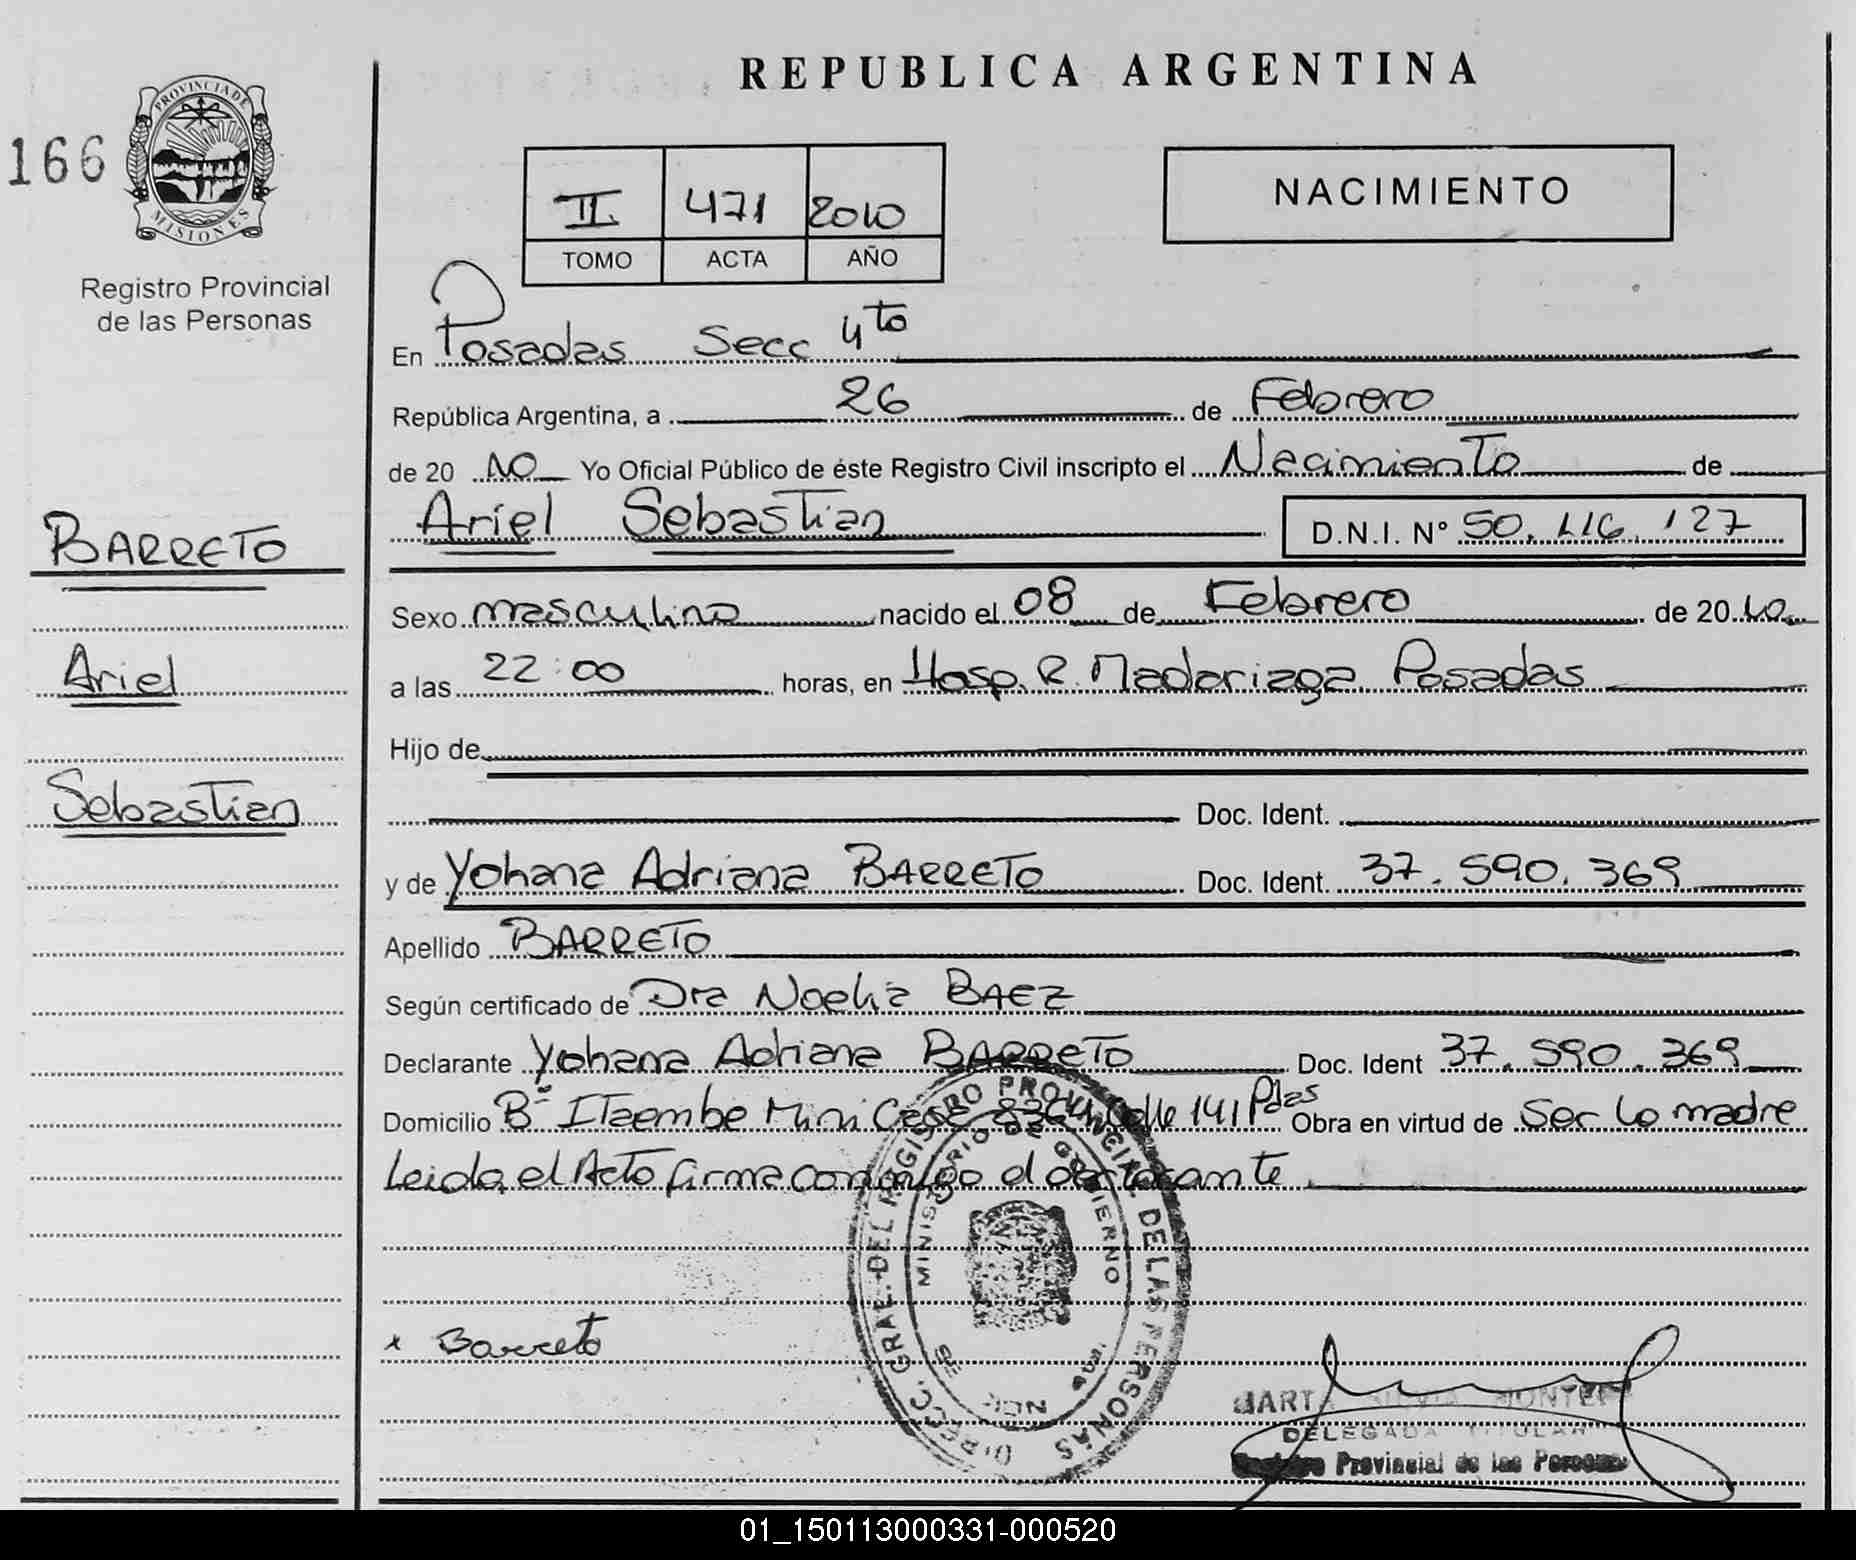 REPUBLICA ARGENTINA
166
PROVINCIA DE
MISIONES
Registro Provincial
de las Personas
II 471 2010
TOMO ACTA AÑO
NACIMIENTO
En Posadas Secc 4to
República Argentina, a 26 de Febrero
de 20 10 Yo Oficial Público de éste Registro Civil inscripto el Nacimiento de
Ariel Sebastian D.N.I. Nº 50.116.127
BARRETO
Ariel
Sebastian
Sexo masculino nacido el 08 de Febrero de 20 10
a las 22:00 horas, en Hosp. R. Madariaga Posadas
Hijo de
Doc. Ident.
y de Yohana Adriana BARRETO Doc. Ident. 37.590.369
Apellido BARRETO
Según certificado de Dra Noelia BAEZ
Declarante Yohana Adriana BARRETO Doc. Ident 37.590.369
Domicilio Bº Itaembe Mini Casa Calle 141 Pdas Obra en virtud de Ser la madre
Leida el Acta firma conmigo el declarante
DIRECC. GRAL. DEL REGISTRO PROVINCIAL DE LAS PERSONAS
MINISTERIO DE GOBIERNO
x Barreto
MARTA SILVIA
DELEGADA TITULAR
Registro Provincial de las Personas
01_150113000331-000520